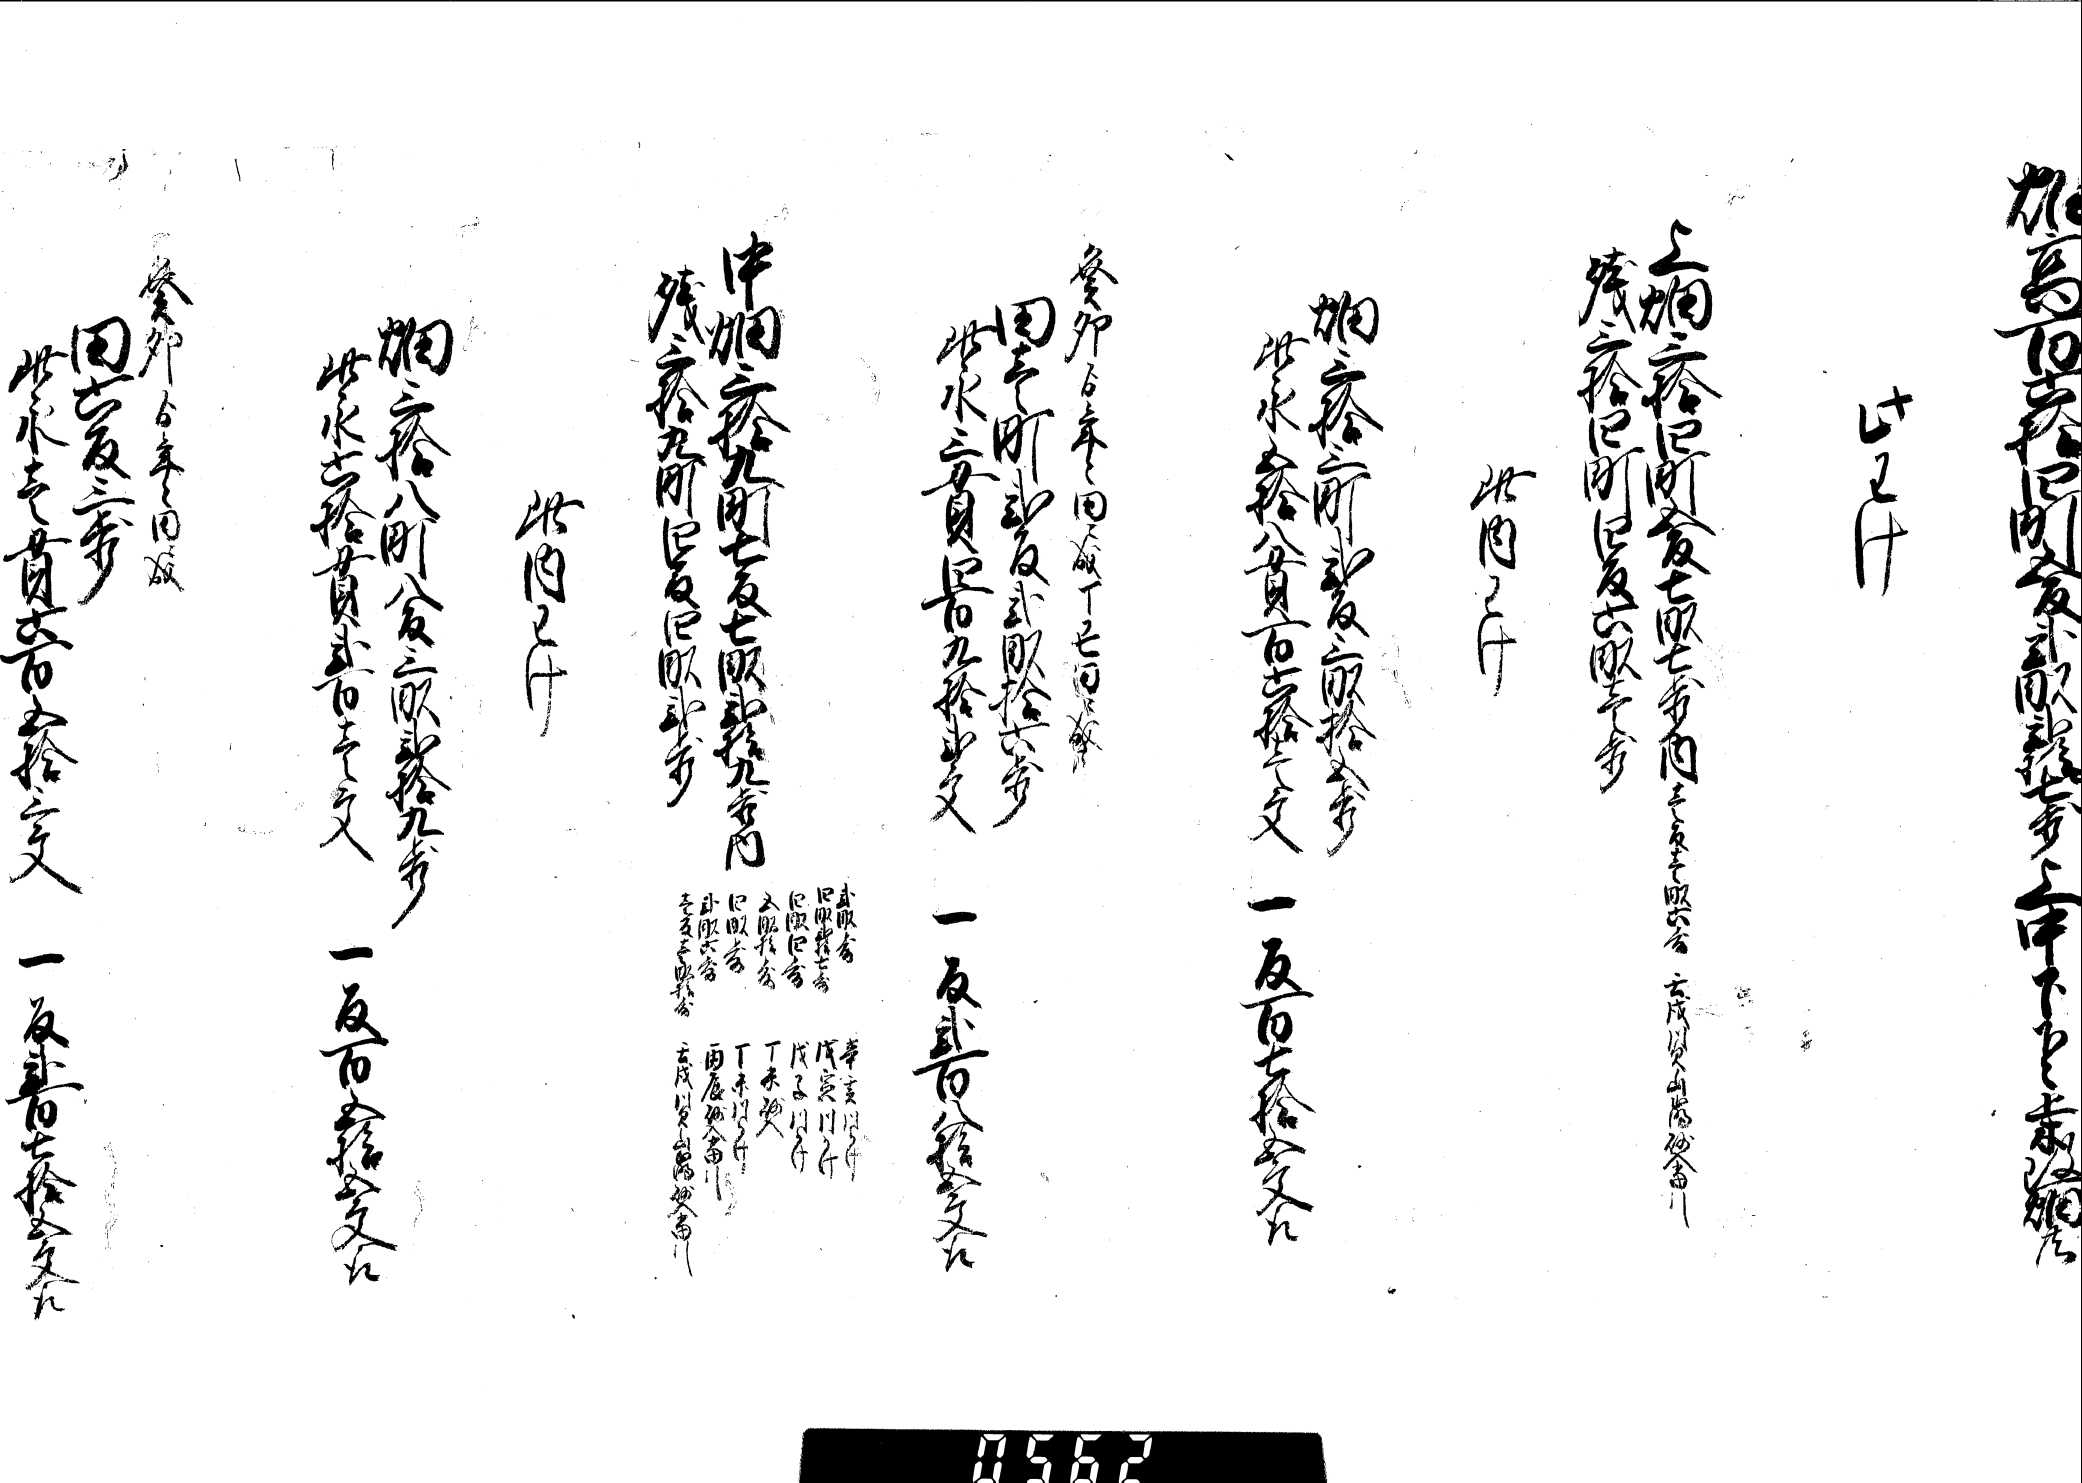 畑高百六拾四町五反弐畝弐拾七歩上中下下々
此わけ
上畑三拾四町五反七畝七歩内 壱反壱畝六歩 壬戌
残三拾四町四反六畝壱歩
此内わけ
畑三拾三町弐反三畝拾五歩
此永五拾八貫百六拾壱文 一反百七拾五文取
癸卯 年 田成
田壱町弐反弐畝拾六歩
此永三貫四百九拾弐文 一反弐百八拾五文取
中畑三拾九町七反七畝弐拾九歩内
弐畝歩 辛亥川欠
四畝拾七歩 戊寅川欠
四畝四歩 戊子川欠
五畝拾歩 丁未砂入
四畝歩 丁未川欠
弐畝六歩 丙辰砂入
壱反壱畝拾歩 壬戌
残三拾九町四反四畝弐歩
此内わけ
畑三拾八町八反三畝弐拾九歩
此永六拾貫弐百壱文 一反百五拾五文取
癸卯 年 田成
田六反三歩
此永壱貫六百五拾三文 一反弐百七拾五文取
0562